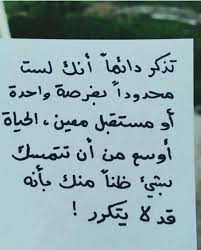 تذكر دائماً أنك لست
محدوداً بفرصة واحدة
أو مستقبل معين ، الحياة
أوسع من أن تتمسك
بشيء ظناً منك بأنه
قد لا يتكرر !